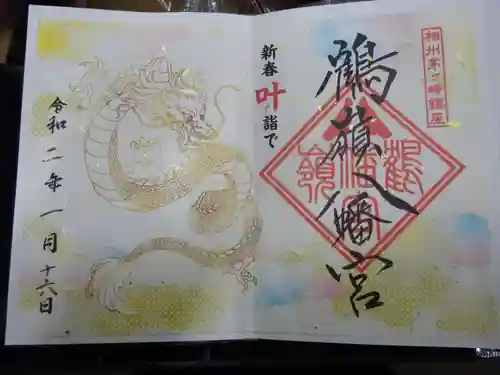 相州茅ヶ崎鎮座
鶴嶺八幡宮
鶴嶺
八幡宮
新春叶詣で
令和二年一月十六日